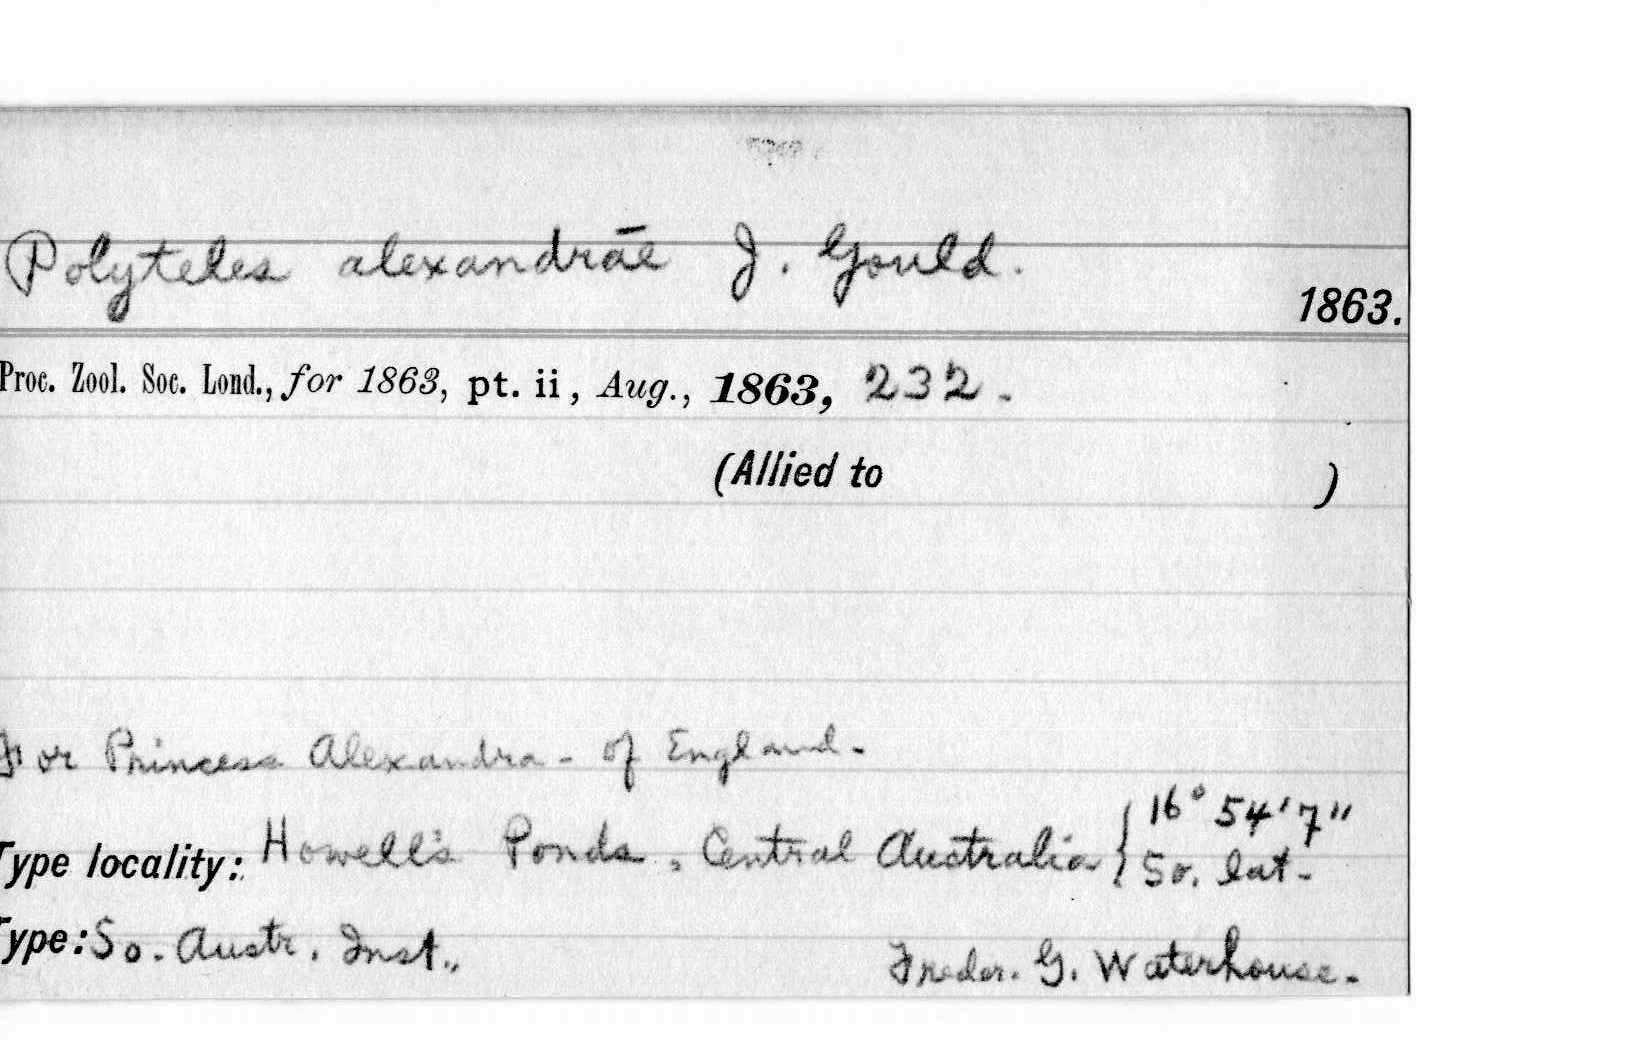 Polyteles alexandrāe J. Gould.
1863.
Proc. Zool. Soc. Lond., for 1863, pt. ii, Aug., 1863, 232.
(Allied to )
For Princess Alexandra - of England.
Type locality: Howell's Ponds, Central Australia { 16° 54' 7"
So. lat.
Type: So. Austr. Inst., Freder. G. Waterhouse.